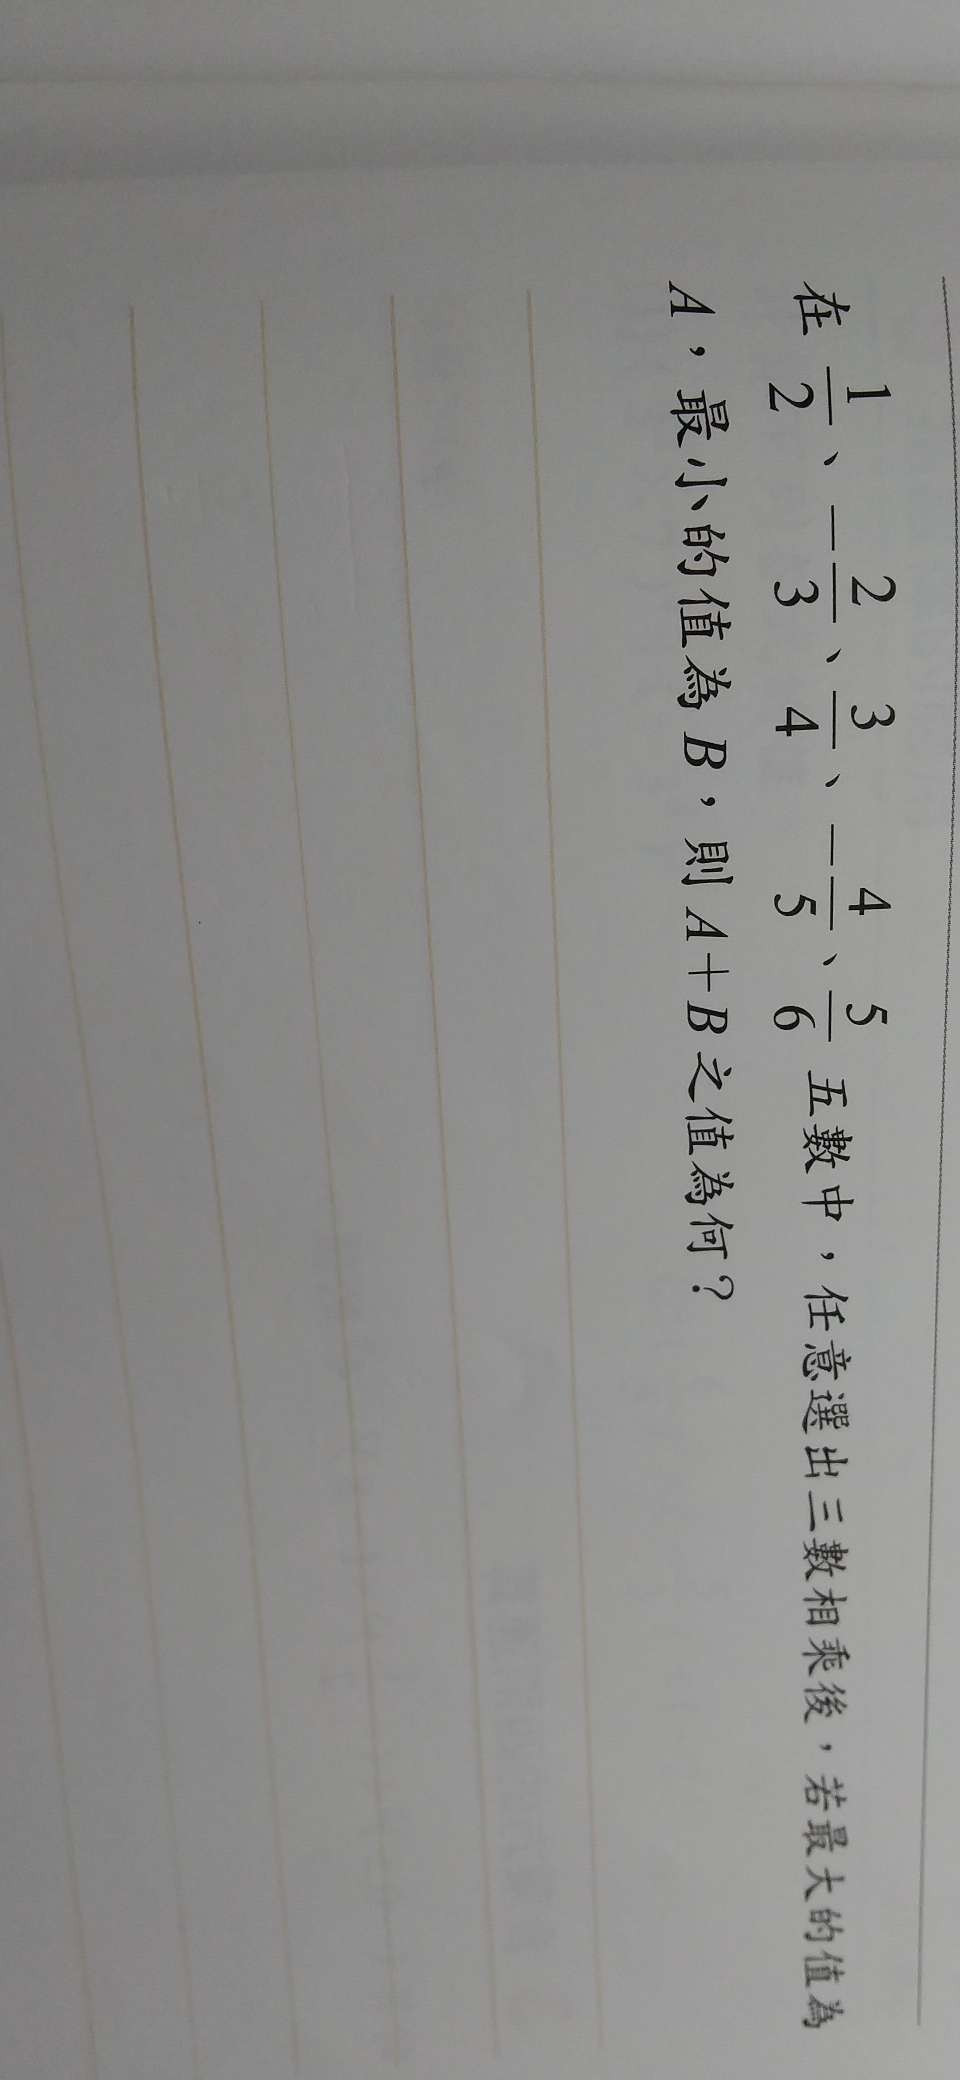 在 1/2、-2/3、3/4、-4/5、5/6 五數中，任意選出三數相乘後，若最大的值為
A，最小的值為 B，則 A+B 之值為何？